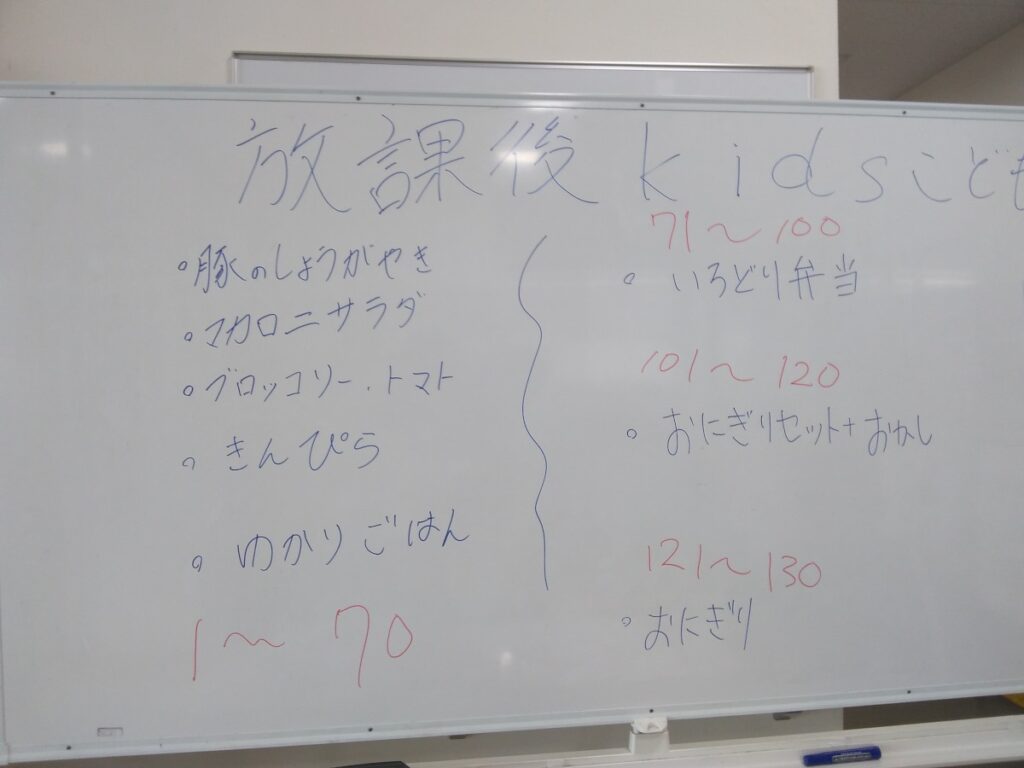 放課後kidsこども
。豚のしょうがやき
。マカロニサラダ
。ブロッコリー．トマト
。きんぴら
。ゆかりごはん
1〜70
71〜100
。いろどり弁当
101〜120
。おにぎりセット+おかし
121〜130
。おにぎり